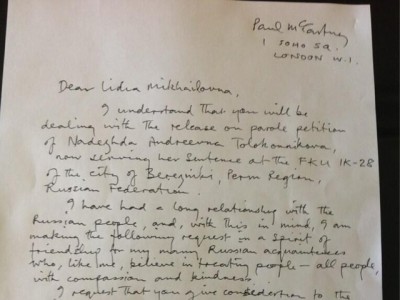 Paul McCartney
1 SOHO SQ.
LONDON W.1.
Dear Lidia Mikhailovna,
I understand that you will be
dealing with the release on parole petition
of Nadezhda Andreevna Tolokonnikova,
now serving her sentence at the FKU IK-28
of the city of Berezniki, Perm Region,
Russian Federation.
I have had a long relationship with the
Russian people, and, with this in mind, I am
making the following request in a spirit of
friendship for my many Russian acquaintances
who, like me, believe in treating people — all people,
with compassion and kindness.
I request that you give consideration to the